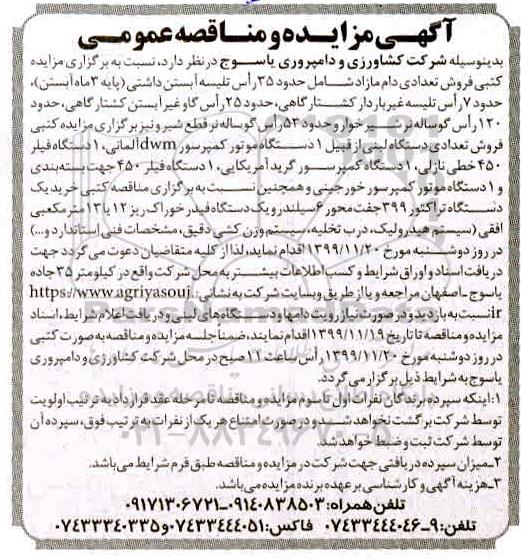 آگهی مزایده و مناقصه عمومی
بدینوسیله شرکت کشاورزی و دامپروری یاسوج در نظر دارد، نسبت به برگزاری مزایده
کتبی فروش تعدادی دام مازاد شامل حدود ۳۵ رأس تلیسه آبستن داشتی (پایه ۳ ماه آبستن)،
حدود ۷ رأس تلیسه غیر باردار کشتارگاهی، حدود ۲۵ رأس گاو غیر آبستن کشتارگاهی، حدود
۱۲۰ رأس گوساله نر شیرخوار و حدود ۵۳ رأس گوساله نر قطع شیر و نیز برگزاری مزایده کتبی
فروش تعدادی دستگاه لبنی از قبیل ۱ دستگاه موتور کمپرسور dwm آلمانی، ۱ دستگاه فیلر
۴۵۰ خطی نازلی، ۱ دستگاه کمپرسور گرید آمریکایی، ۱ دستگاه فیلر ۴۵۰ جهت بسته‌بندی
و ۱ دستگاه موتور کمپرسور خورجینی و همچنین نسبت به برگزاری مناقصه کتبی خرید یک
دستگاه تراکتور ۳۹۹ جفت محور ۶ سیلندر و یک دستگاه فیدر خوراک ریز ۱۲ یا ۱۳ مترمکعبی
افقی (سیستم هیدرولیک، درب تخلیه، سیستم وزن کشی دقیق، مشخصات فنی استاندارد و...)
در روز دوشنبه مورخ ۱۳۹۹/۱۱/۲۰ اقدام نماید، لذا از کلیه متقاضیان دعوت می‌گردد جهت
دریافت اسناد و اوراق شرایط و کسب اطلاعات بیشتر به محل شرکت واقع در کیلومتر ۳۵ جاده
یاسوج ـ اصفهان مراجعه و یا از طریق وبسایت شرکت به نشانی: https://www.agriyasouj.
ir نسبت به بازدید و در صورت نیاز رویت دامها و دستگاه‌های لبنی و دریافت اعلام شرایط، اسناد
مزایده و مناقصه تا تاریخ ۱۳۹۹/۱۱/۱۹ اقدام نمایند، ضمنا جلسه مزایده و مناقصه به صورت کتبی
در روز دوشنبه مورخ ۱۳۹۹/۱۱/۲۰ رأس ساعت ۱۱ صبح در محل شرکت کشاورزی و دامپروری
یاسوج به شرایط ذیل برگزار می گردد.
۱: اینکه سپرده برندگان نفرات اول تا سوم مزایده و مناقصه تا مرحله عقد قرارداد به ترتیب اولویت
توسط شرکت برگشت نخواهد شد و در صورت امتناع هر یک از نفرات به ترتیب فوق، سپرده آن
توسط شرکت ثبت و ضبط خواهد شد.
۲ـ میزان سپرده دریافتی جهت شرکت در مزایده و مناقصه طبق فرم شرایط می باشد.
۳ـ هزینه آگهی و کارشناسی بر عهده برنده مزایده می باشد.
تلفن همراه: ۰۹۱۴۰۸۳۸۵۰۳ـ۰۹۱۷۱۳۰۶۷۲۱
تلفن: ۹ـ۰۷۴۳۳۴۴۴۰۴۶ فاکس: ۰۷۴۳۳۴۴۴۰۵۱ و ۰۷۴۳۳۳۴۰۳۳۵